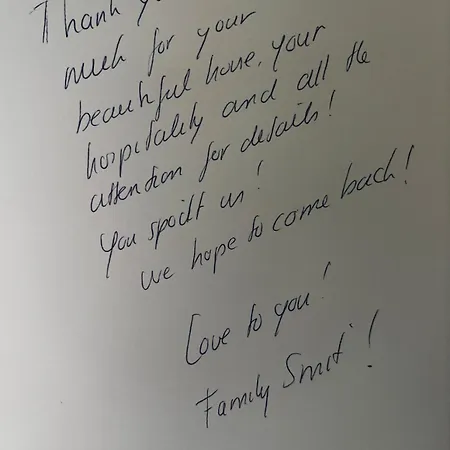 Thank yo
much for your
beautiful house, your
hospitality and all the
attention for details!
You spoilt us!
We hope to come back!
Love to you!
Family Smit!